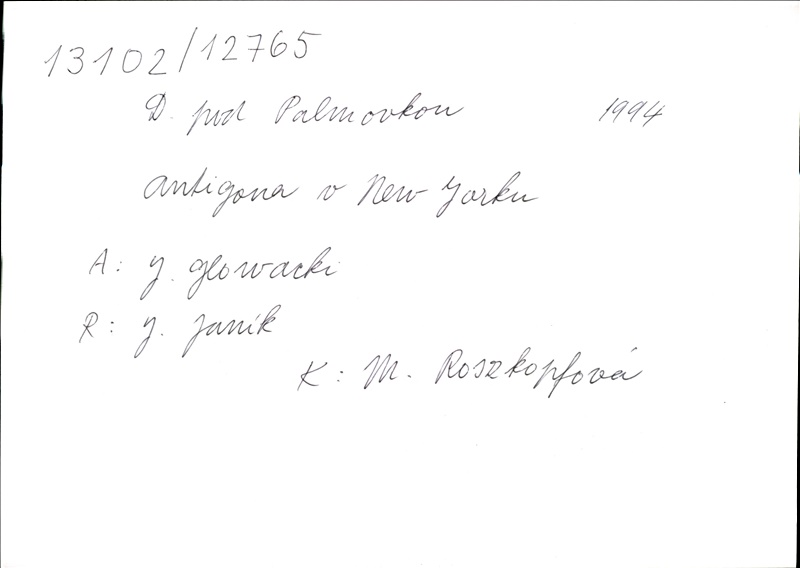 13102/12765
D. pod Palmovkou 1994
Antigona v New Yorku
A: J. Glowacki
R: J. Janík
K: M. Roszkopfová